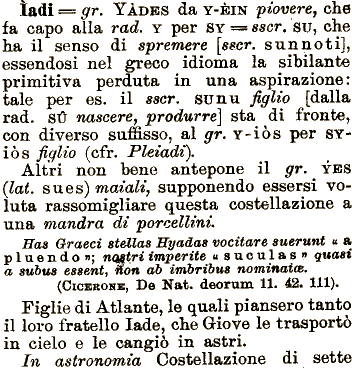 Ìadi = gr. YÀDES da Y-ÈIN piovere, che
fa capo alla rad. Y per SY = sscr. SU, che
ha il senso di spremere [sscr. sunnoti],
essendosi nel greco idioma la sibilante
primitiva perduta in una aspirazione:
tale per es. il sscr. SUNU figlio [dalla
rad. SÛ nascere, produrre] sta di fronte,
con diverso suffisso, al gr. Y-iòs per SY-
iòs figlio (cfr. Pleiadi).
Altri non bene antepone il gr. ÝES
(lat. sues) maiali, supponendo essersi vo-
luta rassomigliare questa costellazione a
una mandra di porcellini.
Has Graeci stellas Hyadas vocitare suerunt « a
pluendo »; nostri imperite « suculas » quasi
a subus essent, non ab imbribus nominatæ.
(CICERONE, De Nat. deorum 11. 42. 111).
Figlie di Atlante, le quali piansero tanto
il loro fratello Iade, che Giove le trasportò
in cielo e le cangiò in astri.
In astronomia Costellazione di sette